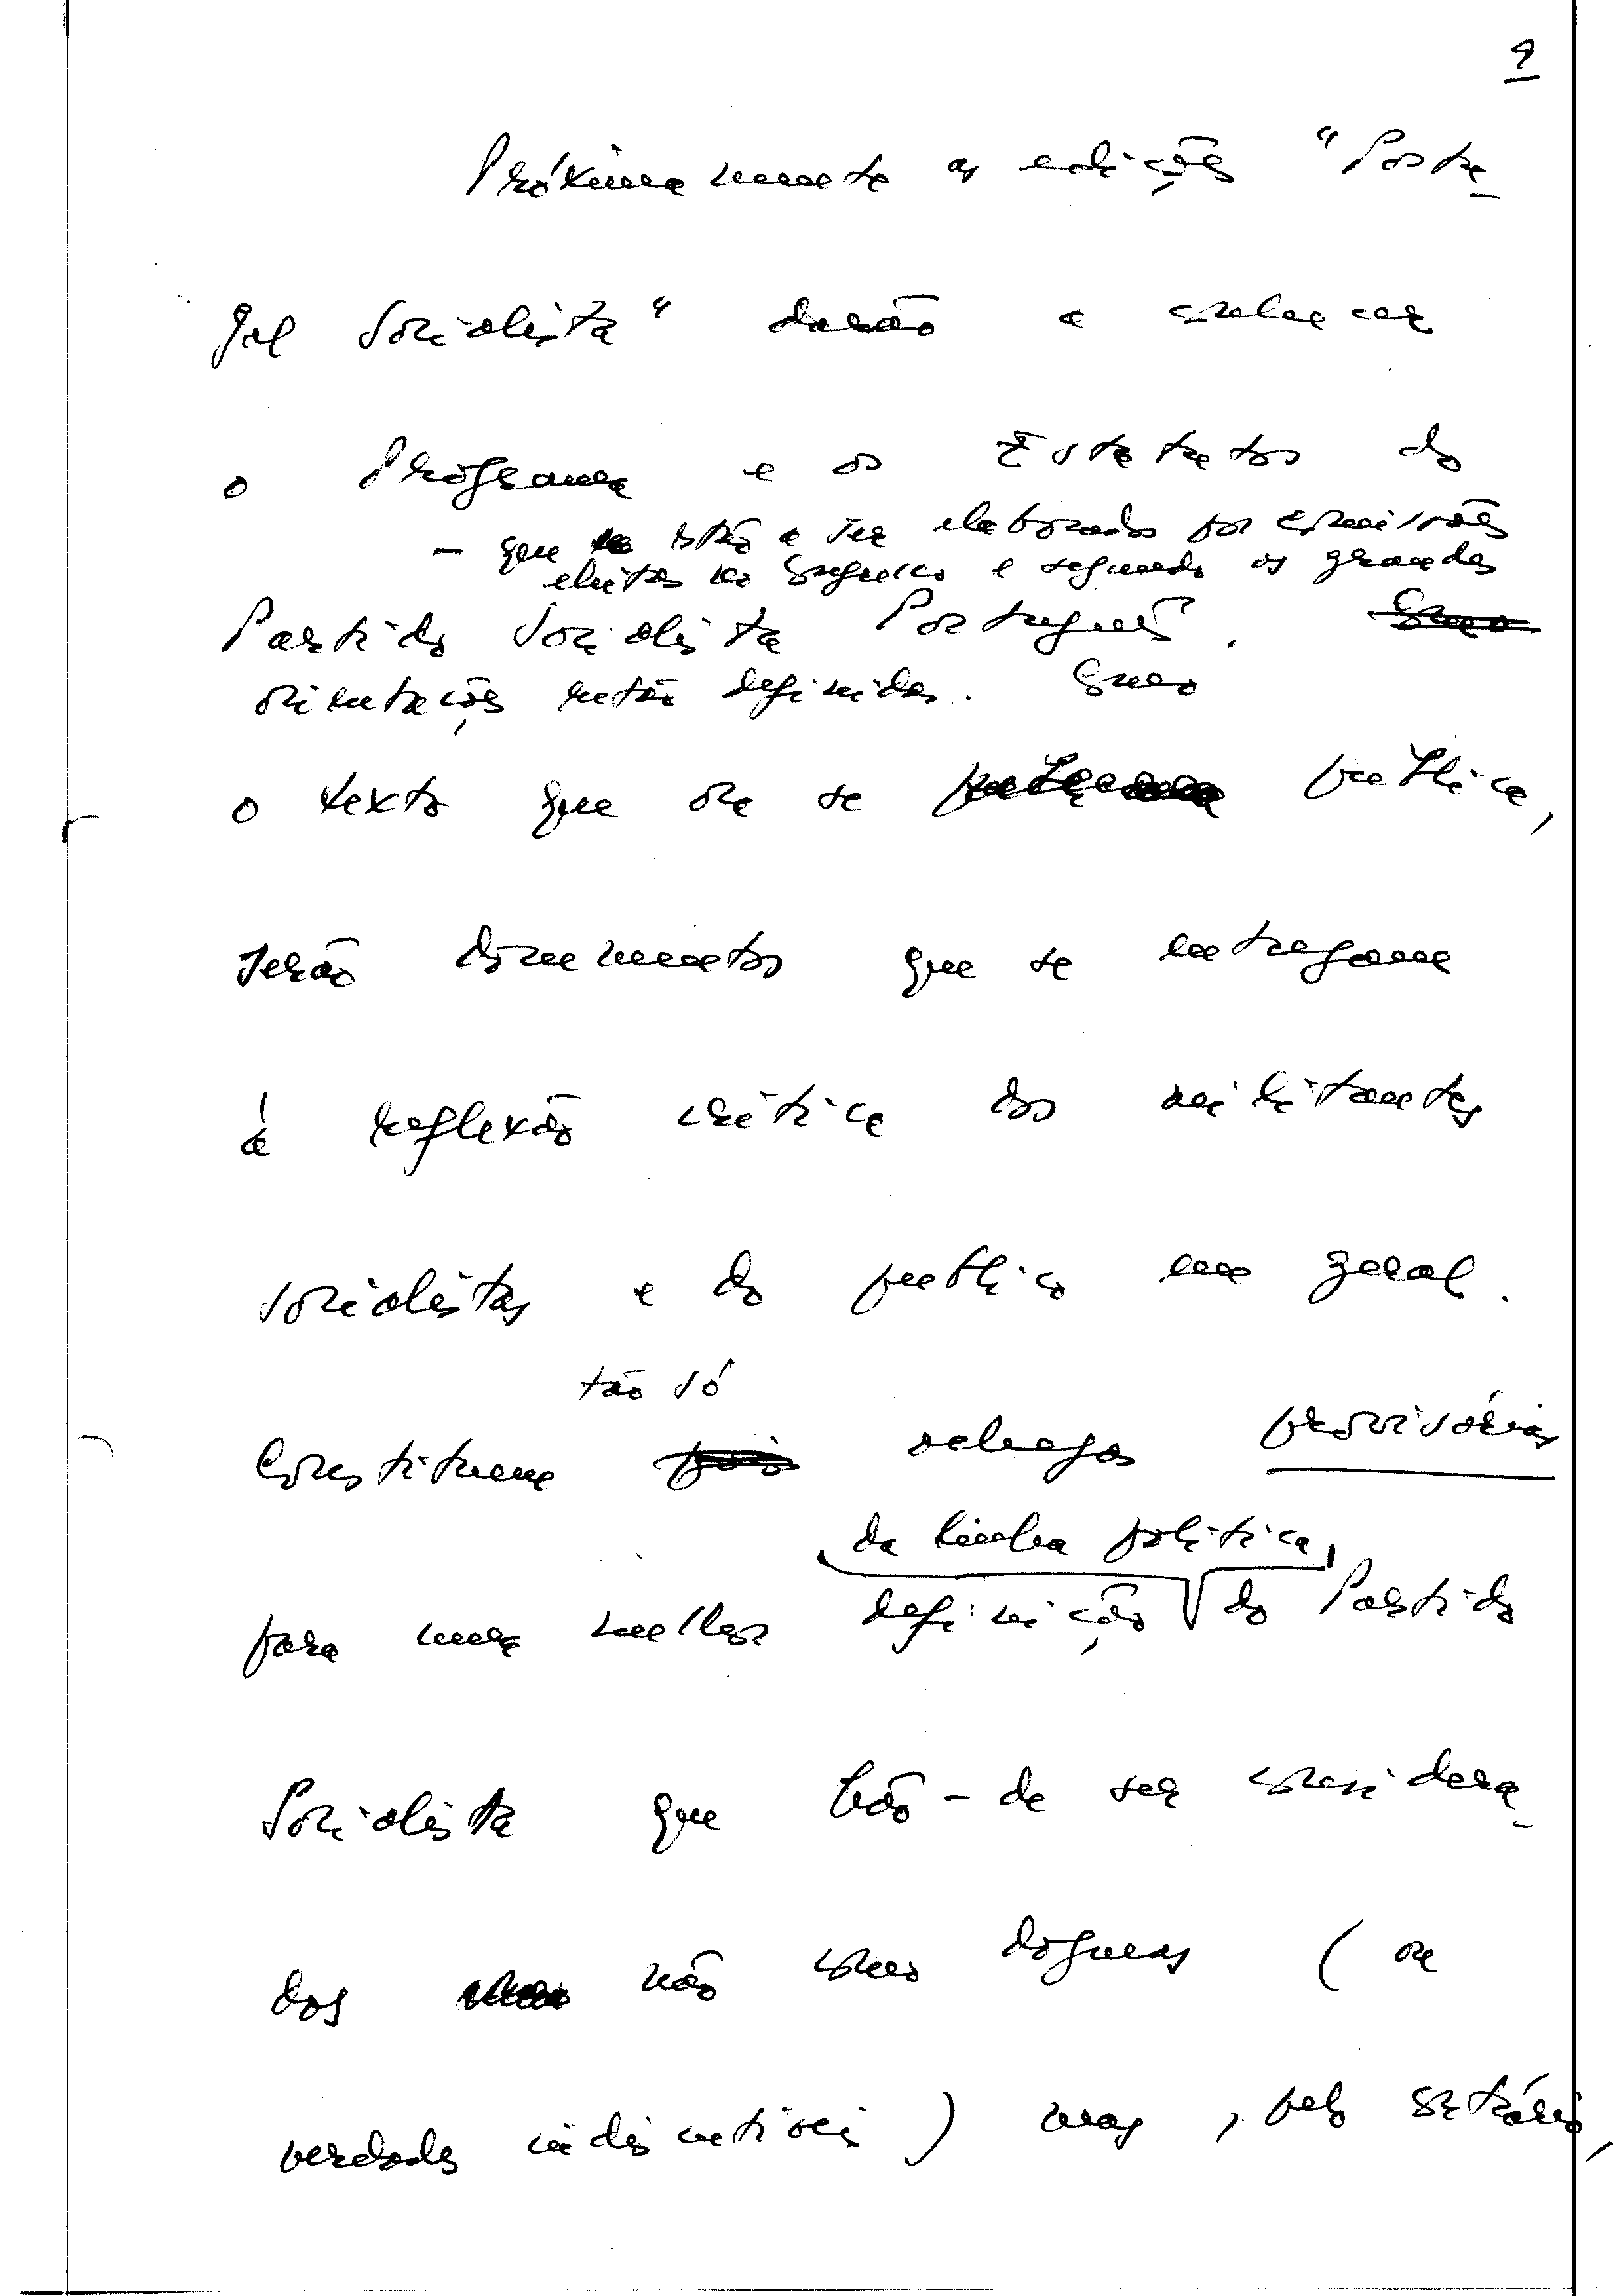 9
Próximamente as edições "Portu-
gal Socialista" darão a conhecer
o Programa e os Estatutos do
- que estão a ser elaborados por comissões
eleitas no Congresso e segundo as grandes
Partido Socialista Português. Como
orientações então definidas. Como
o texto que ora se publica,
serão documentos que se entregam
à reflexão crítica dos militantes
socialistas e do publico em geral.
tão só
Constituem pois esboços provisórios
da linha politica
para uma melhor definição do Partido
Socialista que hão-de ser considera-
dos não como dogmas (ou
verdades indiscutíveis) mas, pelo contrário,